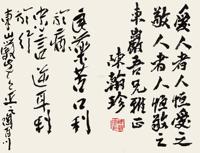 愛人者人恒愛之
敬人者人恒敬之
東巖吾兄雅正
陳翰珍
良藥苦口利
於病
忠言逆耳利
於行